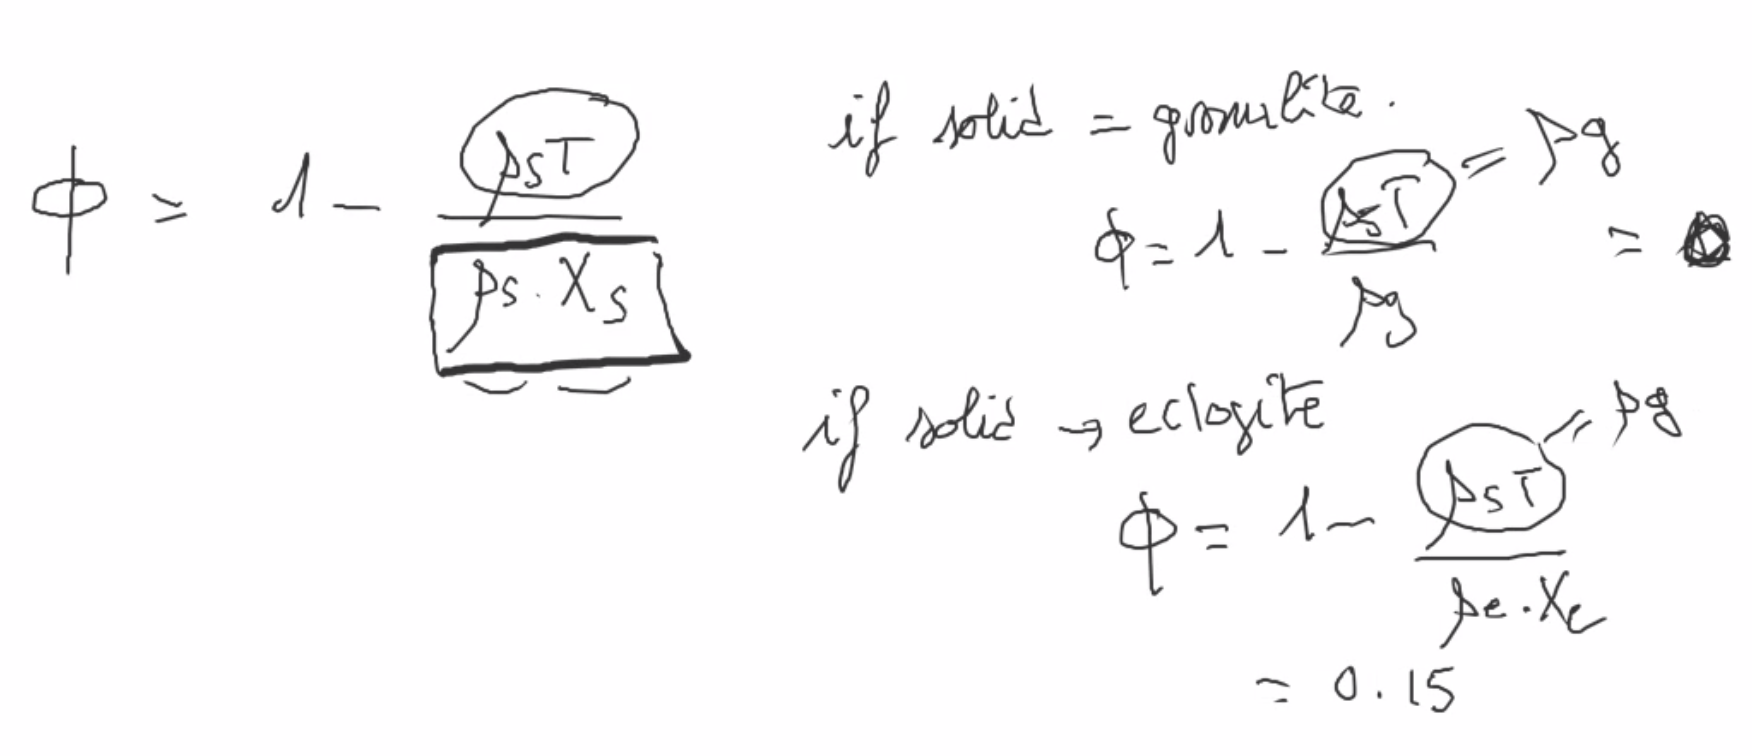 ϕ = 1 - ρsT / ρs . Xs
if solid = granulite.
ϕ = 1 - ρsT / ρg = 0
= ρg
if solid → eclogite
ϕ = 1 - ρsT / ρe . Xe
= ρg
= 0.15